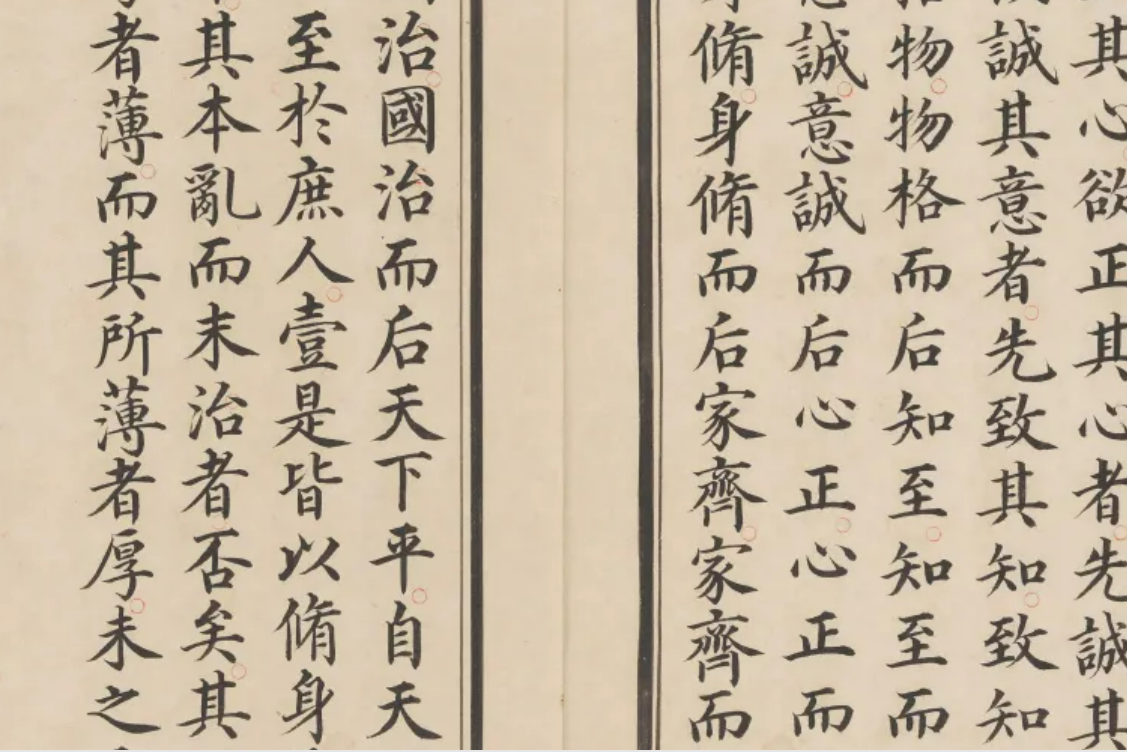 其心欲正其心者先誠其
誠其意者先致其知致知
物物格而后知至知至而
誠意誠而后心正心正而
脩身脩而后家齊家齊而
治國治而后天下平自天
至於庶人壹是皆以脩身
其本亂而末治者否矣其
者薄而其所薄者厚未之